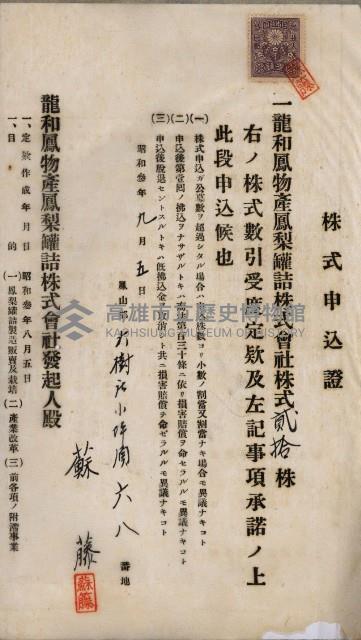 株式申込證
一龍和鳳物產鳳梨罐詰株式會社株式貳拾株
右ノ株式數引受度定欵及左記事項承諾ノ上
此段申込候也
(一)株式申込ガ公募數ヲ超過シタル場合ハ申込株數ヨリ小數ノ割當又割當ナキ場合モ異議ナキコト
(二)申込後第壹回ノ拂込ヲナサザルトキハ商法第百三十條ニ依リ損害賠償ヲ命セラルルモ異議ナキコト
(三)申込後脫退セントスルトキハ既拂込金
共ニ損害賠償ヲ命ゼラルルモ異議ナキコト
昭和參年九月五日
鳳山郡
樹
小坪
六八番地
蘇藤
蘇藤
龍和鳳物產鳳梨罐詰株式會社發起人殿
一、定欵作成年月日 昭和參年八月五日
一、目的 (一)鳳梨罐詰製造販賣及栽培(二)產業改革(三)前各項ノ附滯事業
高雄市立歷史博物館